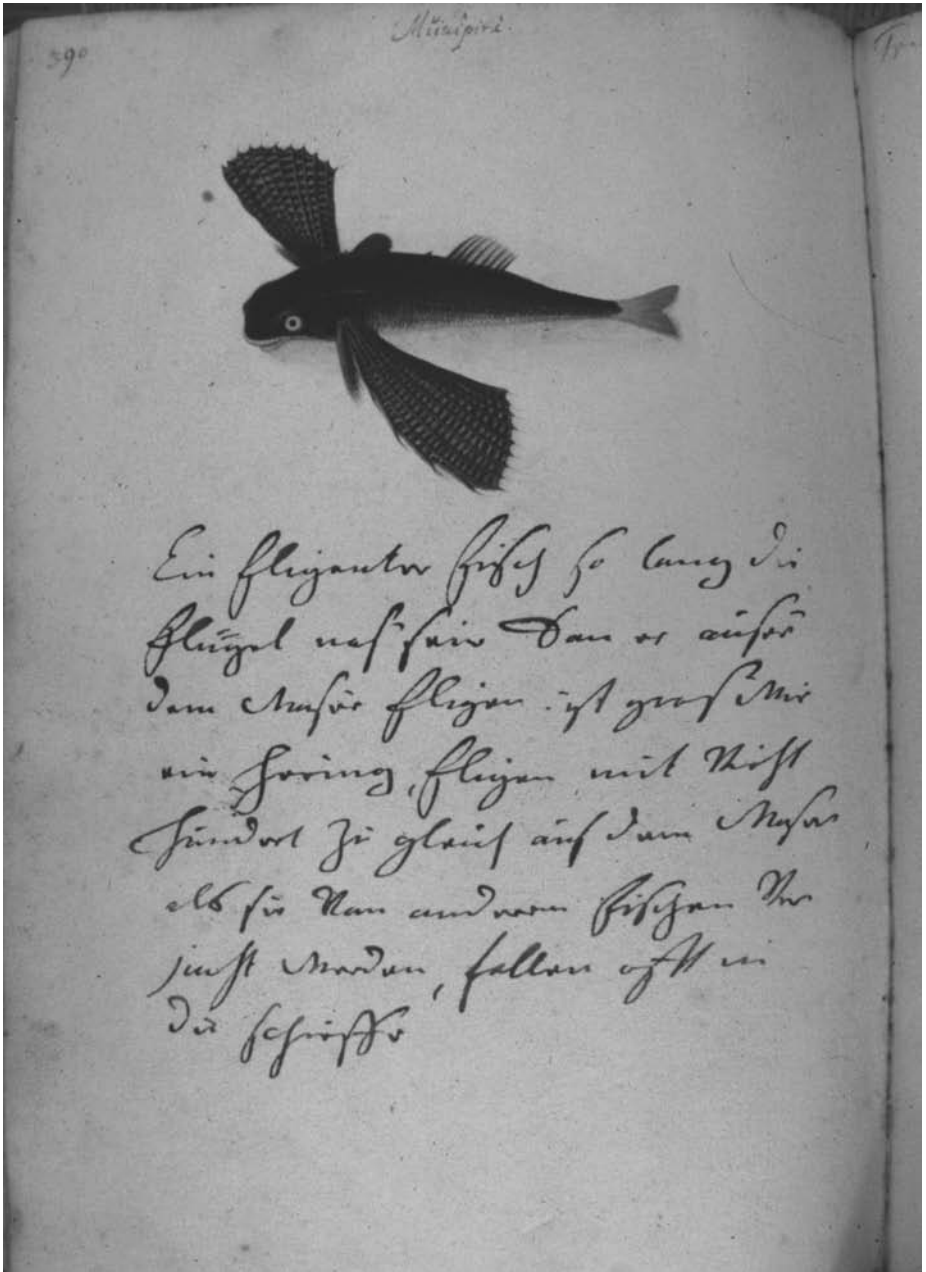 390
Miiaipira.
Ein fligenter fisch so lang die
flügel nas sein dan er auser
dem Waser fligen ist gros wie
ein hering, fligen mit Viehl
hundert zu gleich aus dem Waser
als sie Van anderen fischen Ver
jacht werden, fallen offt in
die schieffe